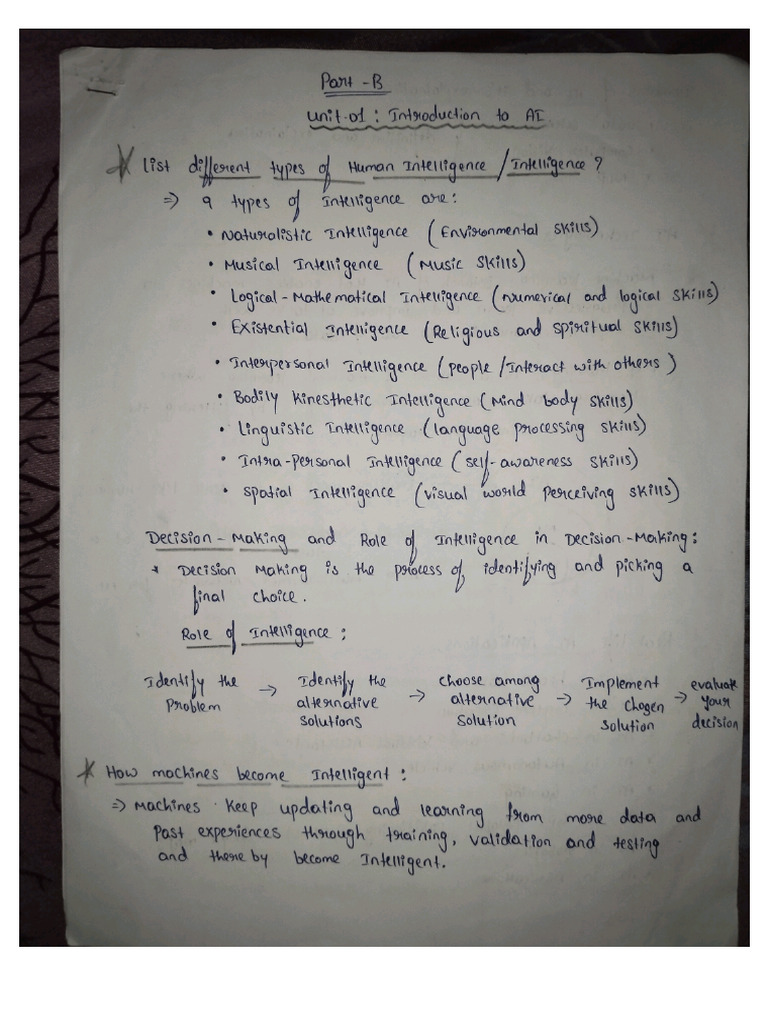 Part -B
Unit-01 : Introduction to AI
* List different types of Human Intelligence / Intelligence ?
⇒ 9 types of Intelligence are:
• Naturalistic Intelligence (Environmental Skills)
• Musical Intelligence (Music Skills)
• Logical - Mathematical Intelligence (Numerical and logical skills)
• Existential Intelligence (Religious and spiritual skills)
• Interpersonal Intelligence (people / Interact with others)
• Bodily kinesthetic Intelligence (Mind body skills)
• Linguistic Intelligence (language processing skills)
• Intra-personal Intelligence (self-awareness skills)
• Spatial Intelligence (visual world perceiving skills)
Decision - Making and Role of Intelligence in Decision-Making:
* Decision Making is the process of identifying and picking a
final choice.
Role of Intelligence:
Identify the Problem → Identify the alternative solutions → Choose among alternative solution → Implement the chosen solution → evaluate your decision
* How machines become Intelligent:
⇒ Machines keep updating and learning from more data and
Past experiences through training, validation and testing
and there by become Intelligent.